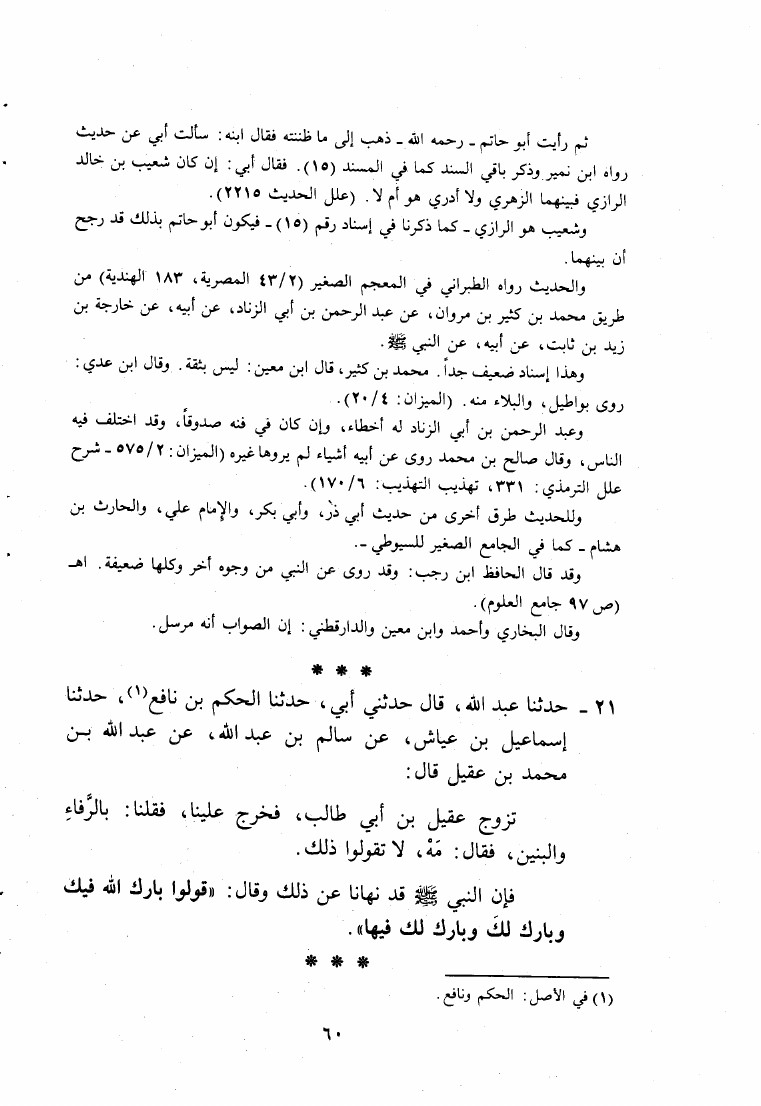 ثم رأيت أبو حاتم ـ رحمه الله ـ ذهب إلى ما ظننته فقال ابنه: سألت أبي عن حديث
رواه ابن نمير وذكر باقي السند كما في المسند (١٥). فقال أبي: إن كان شعيب بن خالد
الرازي فبينهما الزهري ولا أدري هو أم لا. (علل الحديث ٢٢١٥).
وشعيب هو الرازي ـ كما ذكرنا في إسناد رقم (١٥) ـ فيكون أبو حاتم بذلك قد رجح
أن بينهما.
والحديث رواه الطبراني في المعجم الصغير (٤٣/٢ المصرية، ١٨٣ الهندية) من
طريق محمد بن كثير بن مروان، عن عبد الرحمن بن أبي الزناد، عن أبيه، عن خارجة بن
زيد بن ثابت، عن أبيه، عن النبي ﷺ.
وهذا إسناد ضعيف جداً. محمد بن كثير، قال ابن معين: ليس بثقة. وقال ابن عدي:
روى بواطيل، والبلاء منه. (الميزان: ٢٠/٤).
وعبد الرحمن بن أبي الزناد له أخطاء، وإن كان في فنه صدوقاً، وقد اختلف فيه
الناس، وقال صالح بن محمد روى عن أبيه أشياء لم يروها غيره (الميزان: ٥٧٥/٢ ـ شرح
علل الترمذي: ٣٣١، تهذيب التهذيب: ١٧٠/٦).
وللحديث طرق أخرى من حديث أبي ذرّ، وأبي بكر، والإمام علي، والحارث بن
هشام ـ كما في الجامع الصغير للسيوطي ـ.
وقد قال الحافظ ابن رجب: وقد روى عن النبي من وجوه أخر وكلها ضعيفة. اهـ
(ص ٩٧ جامع العلوم).
وقال البخاري وأحمد وابن معين والدارقطني: إن الصواب أنه مرسل.
* * *
٢١ ـ حدثنا عبد الله، قال حدثني أبي، حدثنا الحكم بن نافع(١)، حدثنا
إسماعيل بن عياش، عن سالم بن عبد الله، عن عبد الله بن
محمد بن عقيل قال:
تزوج عقيل بن أبي طالب، فخرج علينا، فقلنا: بالرَّفاءِ
والبنين، فقال: مَهْ، لا تقولوا ذلك.
فإن النبي ﷺ قد نهانا عن ذلك وقال: «قولوا بارك الله فيك
وبارك لكَ وبارك لك فيها».
* * *
(١) في الأصل: الحكم ونافع.
٦٠